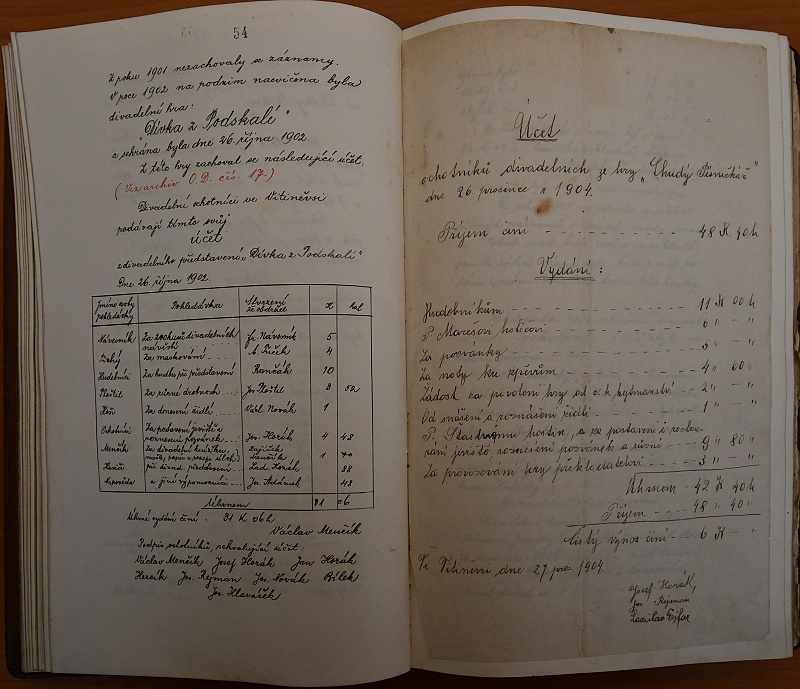 54
Z roku 1901 nezachovaly se záznamy.
V roce 1902 na podzim nacvičena byla
divadelní hra:
"Dívka z Podskalí"
a sehrána byla dne 26. října 1902.
Z této hry zachoval se následující účet:
(Viz archiv O.D. čís. 17.)
Divadelní ochotníci ve Vitiněvsi
podávají tímto svůj
Účet
z divadelního představení "Dívka z Podskalí"
Dne 26. října 1902.
Jméno osoby pohledávky Pohledávka Stvrzení že obdržel K hal
Návesník Za zoskum divadelních návěsk. Fr. Návesník 5
Za maskování A. Fúček 4
Hudebníci Za hudbu při představení Rančák 10
Pleštil Za různé drobnosti Jos. Pleštil 3 52
Za donesení židlí Václ. Novák 1
Ochotníci Za postavení jeviště a roznesení pozvánek Jos. Horák 4 48
Menčík Za divadelní knížku 1 70
při divad. představení Lad. Horák 88
a jiné výpomocnosti Jos. Adánek 48
Úhrnem 31 06
Úhrnné vydání činí 31 K 06 h
Václav Menčík
Podpis ochotníků, schvalující účet:
Václav Menčík Josef Horák Jan Horák
Hercík Jos. Rejman Jos. Novák Bílek
Jos. Hlaváček
Účet
ochotníků divadelních ze hry "Chudý Písničkář"
dne 26. prosince r. 1904.
Příjem činí 48 K 40 h
Vydání:
Hudebníkům 11 K 00 h
P. Maršovi holiči 6 " — "
Za pozvánky — " — "
Za noty ku zpěvům 4 " 60 "
Žádost za povolení hry od c. k. hejtmanství 2 " — "
Od snášení a roznášení židlí 1 " — "
P. Šťastnému hostin. a za postavení i rozbo-
rání jeviště, roznesení pozvánek a různé 9 " 80 "
Za provozování hry překladateli 3 " — "
Úhrnem 42 K 40 h
Příjem 48 " 40 "
Čistý výnos činí 6 K — "
Ve Vitiněvsi dne 27 pros. 1904
Josef Horák,
Jos. Rejman
Ladislav Fejfar